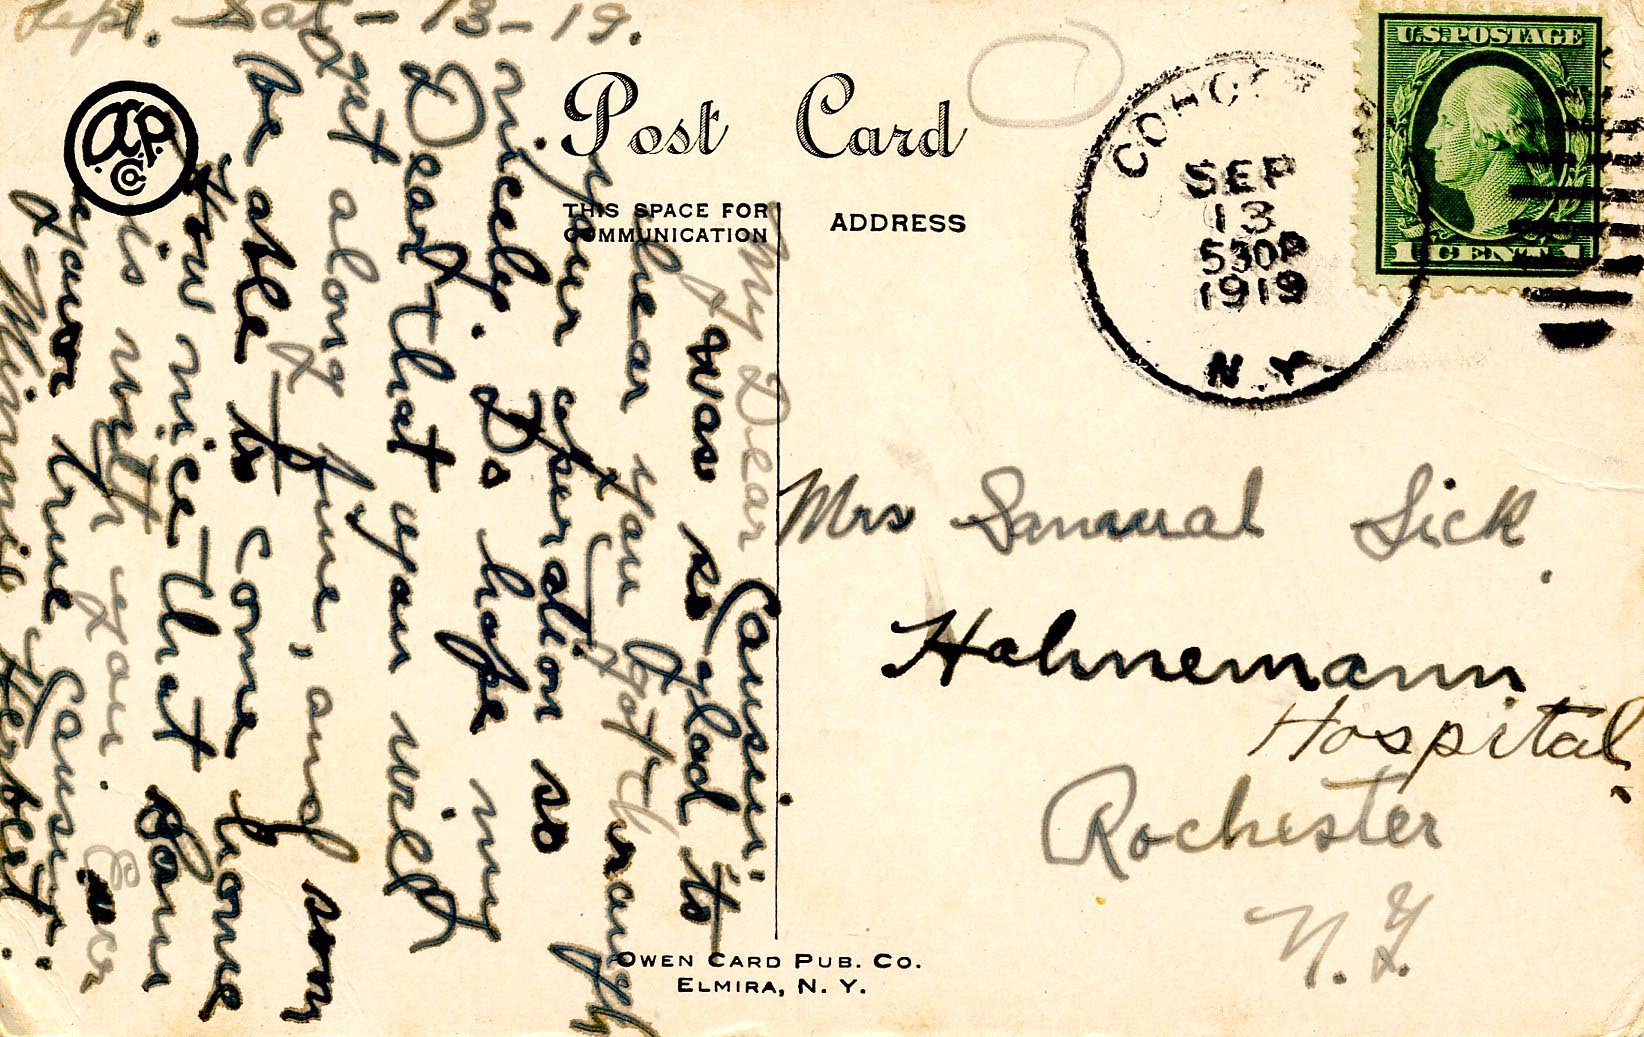 Sept. Sat - 13 - 19.
My Dear Cousin:
I was so glad to
hear you got through
your operation so
nicely. Do hope my
Dear that you will
get along fine, and soon
be able to come home
How nice that Son
is with you. Ever
your true Cousin.
X- Minnie Herbert.
Post Card
THIS SPACE FOR
COMMUNICATION
ADDRESS
SEP
13
530P
1919
N.Y.
U.S. POSTAGE
1 CENT 1
Mrs Samual Sick.
Hahnemann
Hospital.
Rochester
N.Y.
OWEN CARD PUB. CO.
ELMIRA, N. Y.